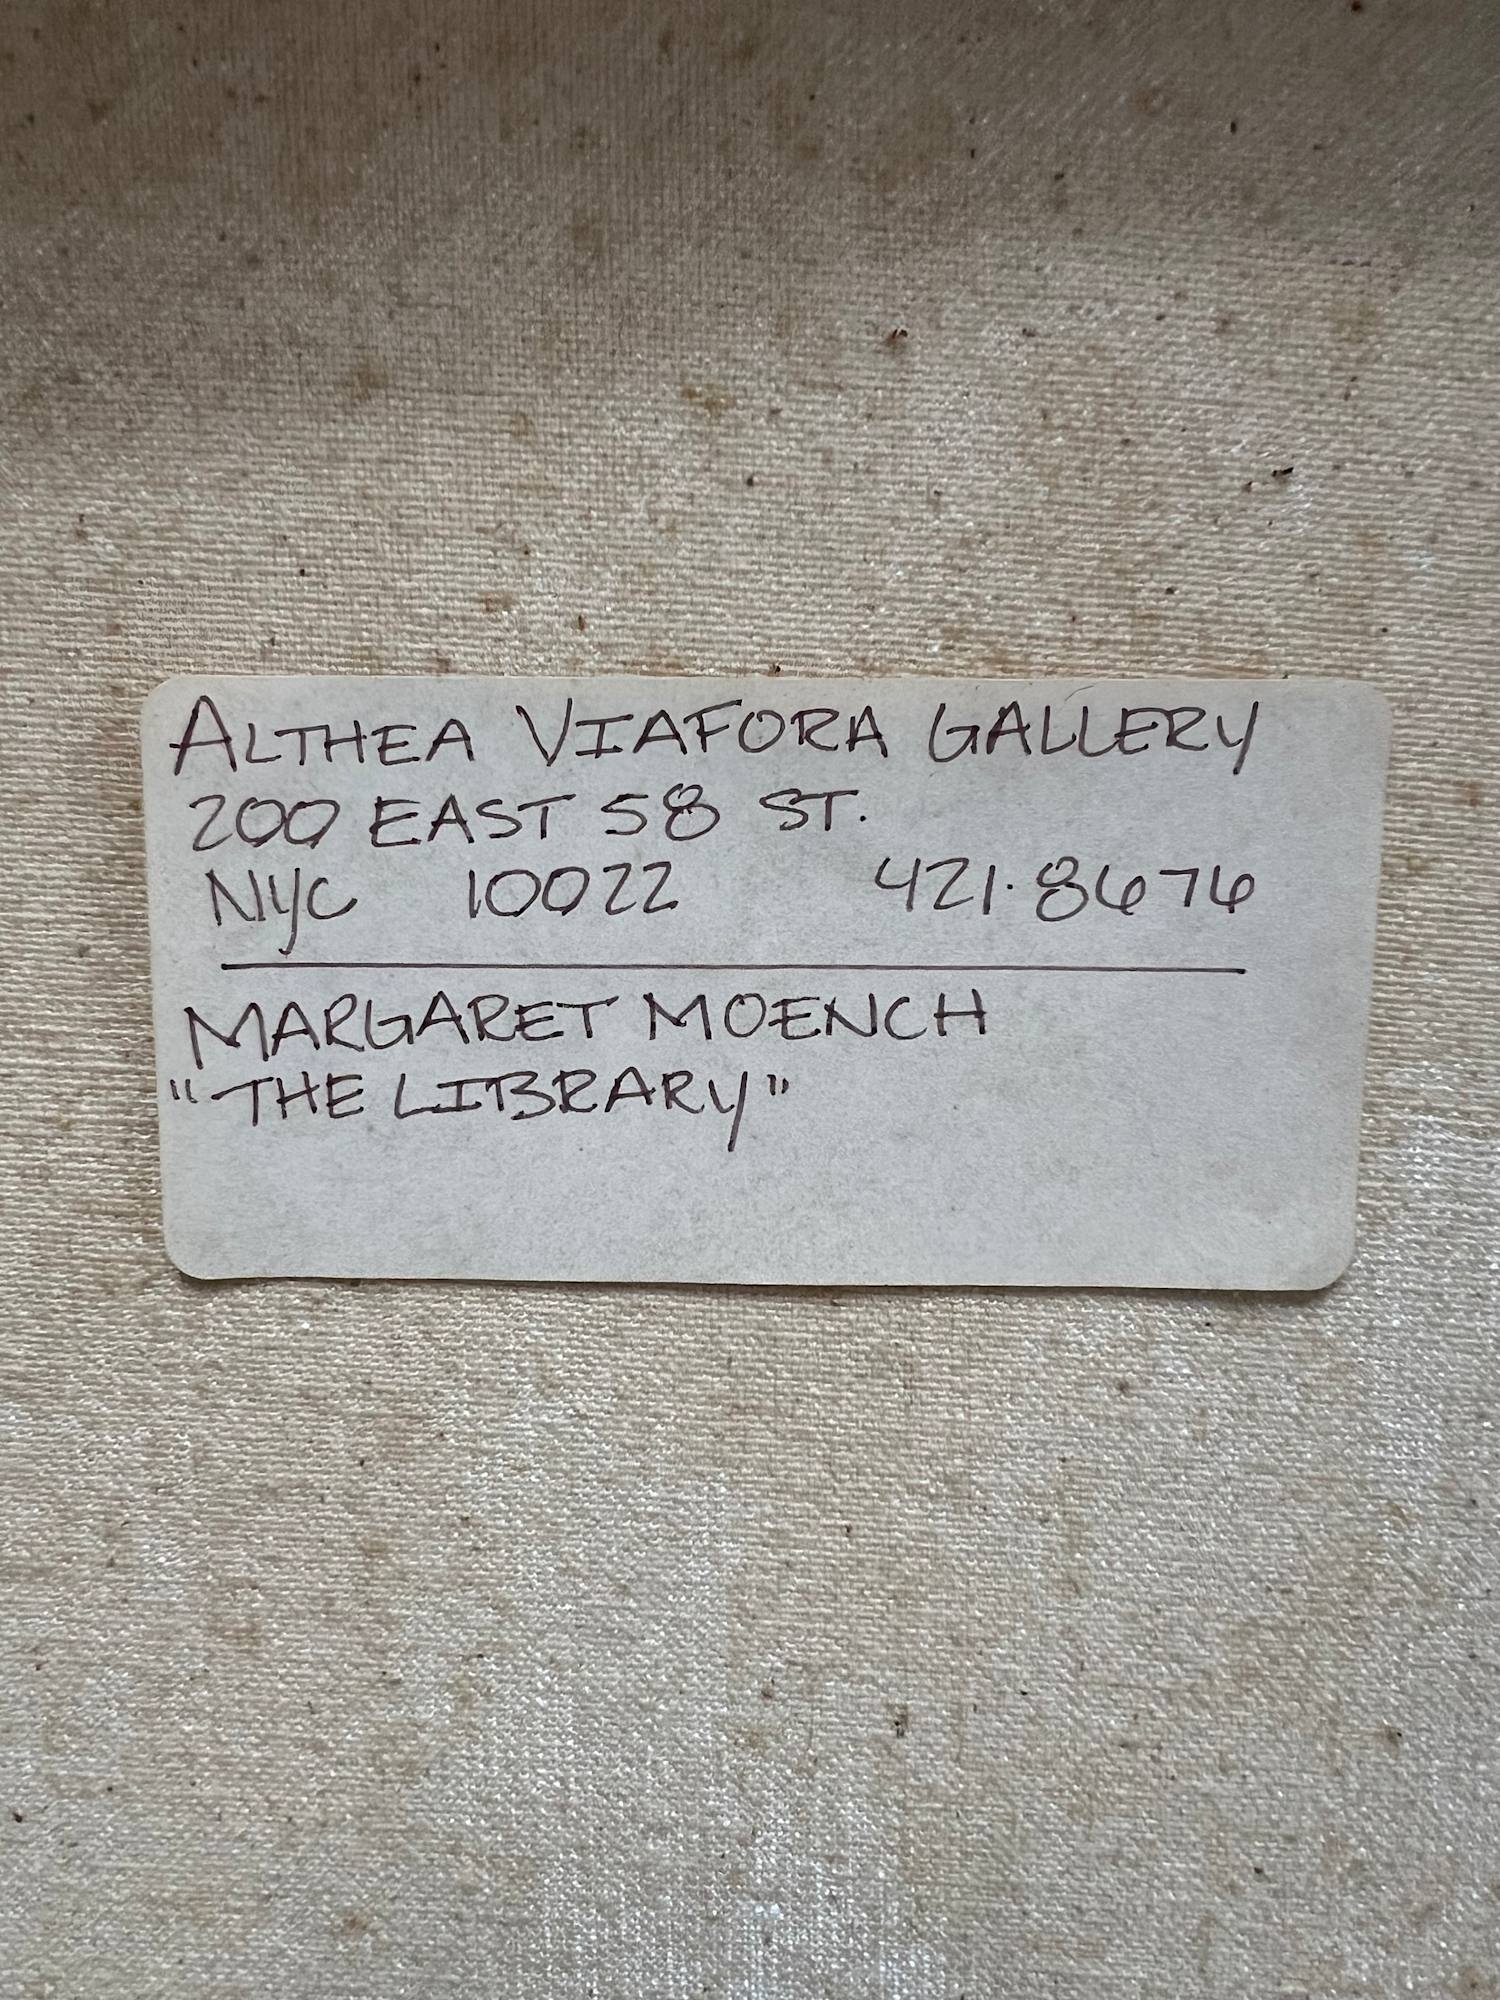 ALTHEA VIAFORA GALLERY
200 EAST 58 ST.
NYC 10022 421.8676
MARGARET MOENCH
"THE LIBRARY"